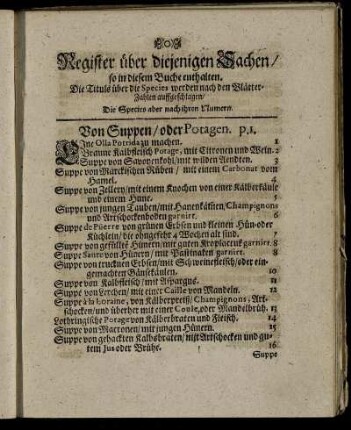 Register über diejenigen Sachen/
so in diesem Buche enthalten.
Die Titulo über die Species werden nach den Blätter-
Zahlen auffgeschlagen/
Die Species aber nach ihren Numern.
Von Suppen/oder Potagen. p.1.
Eine Olla Potrida zu machen. 1
Braune Kalbfleisch Potage, mit Citronen und Wein. 2
Suppe von Savoyenkohl/mit wilden Aendten. 3
Suppe von Märckischen Rüben/ mit einem Carbonat vom
Hamel. 4
Suppe von Zellery/mit einem Knochen von einer Kälberkäule
und einem Hune. 5
Suppe von jungen Tauben/mit Hanenkäm̃en, Champignons
und Artschockenboden garnirt. 6
Suppe de Püerre von grünen Erbsen und kleinen Hün-oder
Küchlein/die ohngefehr 4 Wochen alt sind. 7
Suppe von gefüllte Hünern/mit guten garnirt. 8
Suppe Sante von Hünern/mit Pastinaten garnirt. 9
Suppe von trucknen Erbsen/mit Schweinefleisch/oder ein-
gemachten Gänsekäulen. 10
Suppe von Kalbfleisch/mit Aspargus. 11
Suppe von Lerchen/mit einer Caille von Mandeln. 12
Suppe à la Loraine, von Kälberpreiß/Champignons, Art-
schocken/und überher mit einer Coule, oder Mandelbrüh. 13
Lothringische Potage von Kälberbraten und Fleisch. 14
Suppe von Macronen/mit jungen Hünern. 15
Suppe von gehackten Kalbsbraten/mit Artschocken und gu-
tem Jus oder Brühe. 16
Suppe